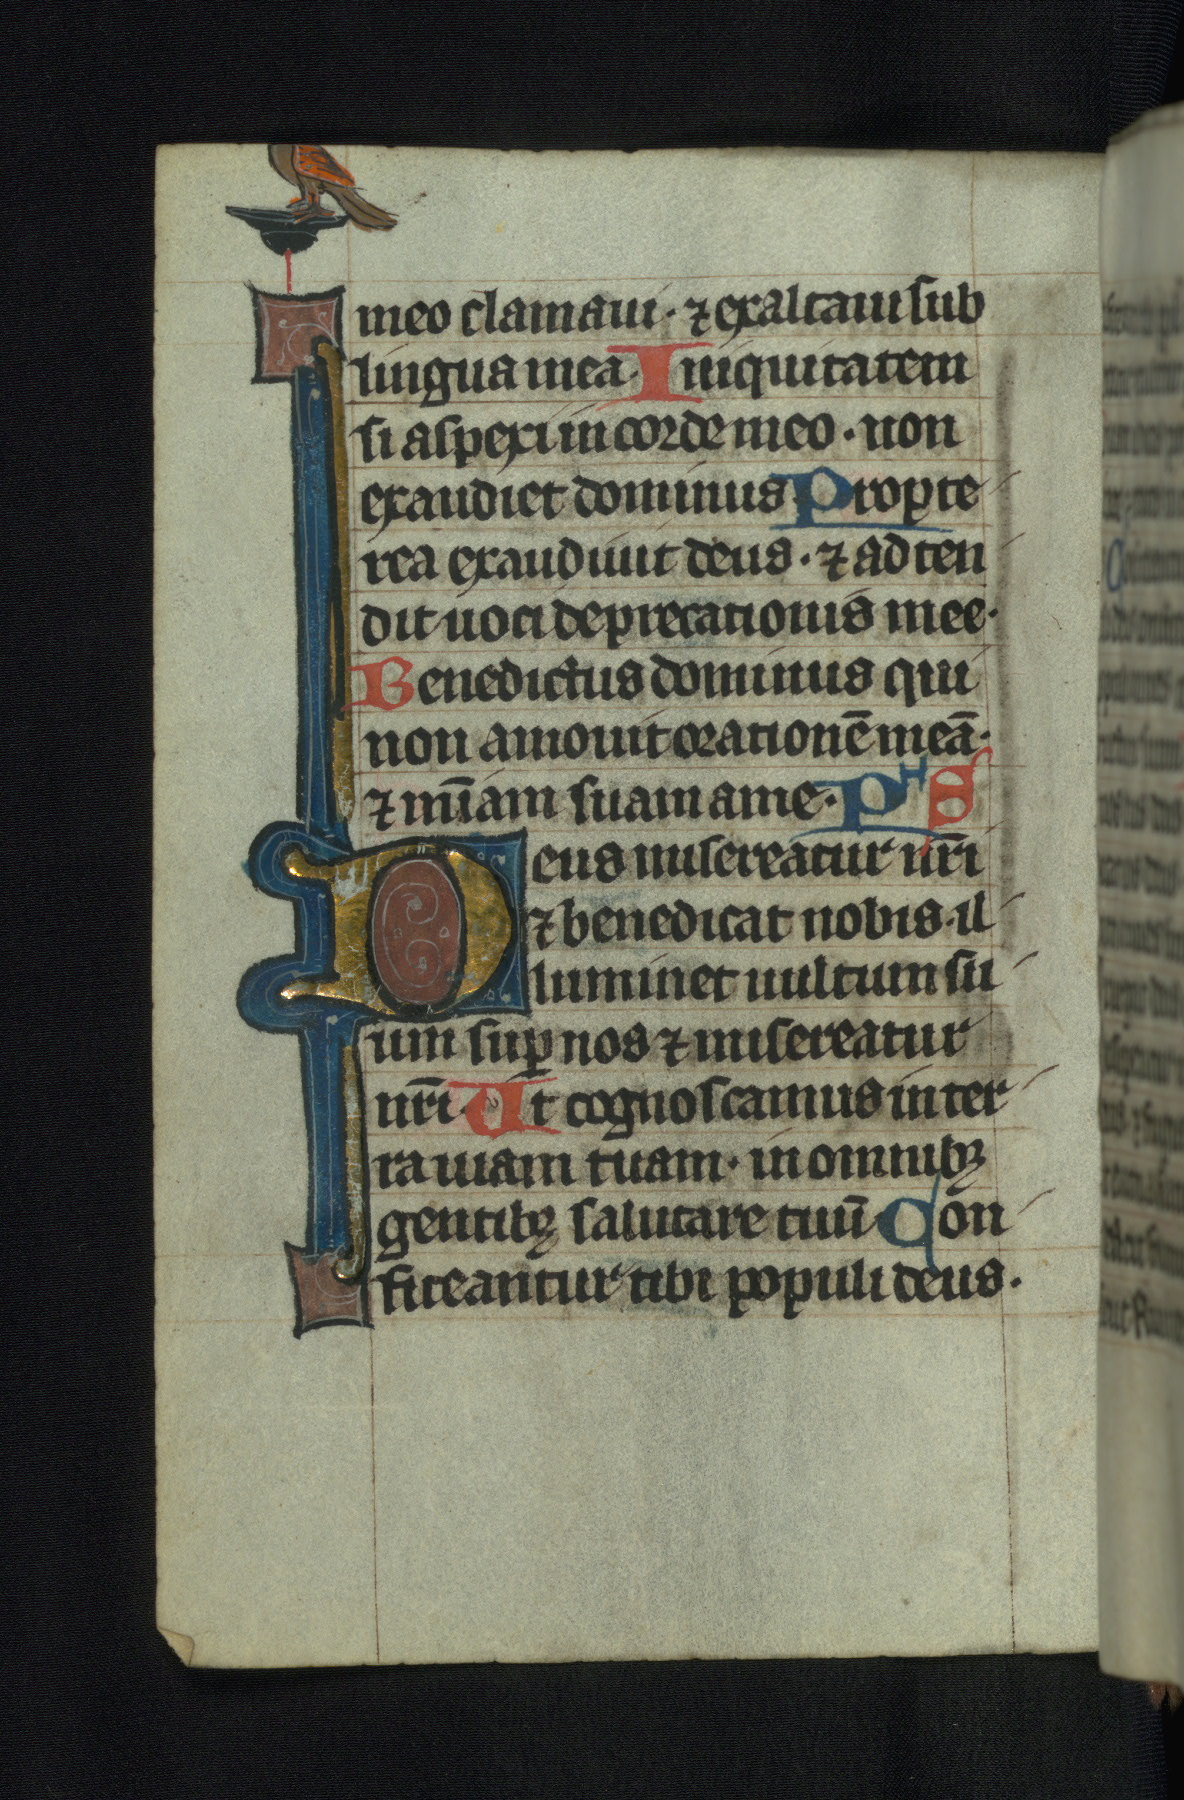 meo clamaui · ⁊ exaltaui sub
lingua mea · Iniquitatem
si aspexi in corde meo · non
exaudiet dominus Propte
rea exaudiuit deus · ⁊ adten
dit uoci deprecationis mee ·
Benedictus dominus qui
non amouit orationē meā ·
⁊ mīam suam a me · PS
Deus misereatur nr̄i
⁊ benedicat nobis · il
luminet uultum su
um suꝑ nos ⁊ misereatur
nr̄i · Ut cognoscamus in ter
ra uiam tuam · in omnibꝫ
gentibꝫ salutare tuū Con
fiteantur tibi populi deus ·